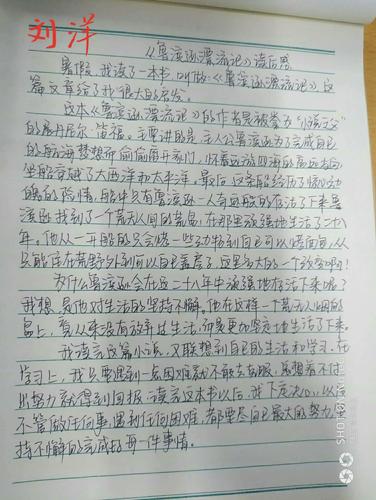 刘洋
《鲁滨逊漂流记》读后感
暑假,我读了一本书,叫做《鲁滨逊漂流记》,这
篇文章给了我很大的启发。
这本《鲁滨逊漂流记》的作者是被誉为"小说之父"
的丹尼尔·笛福。主要讲的是:主人公鲁滨逊为了完成自己
的航海梦想而偷偷离开家门,怀着远游四海的高远志向,
坐船穿越了大西洋和太平洋。最后,这条船经历了惊心动
魄的险情,船中只有鲁滨逊一人奇迹般的存活了下来。鲁
滨逊找到了个荒无人间的荒岛,在那里顽强地生活了二十八
年。他从一开始的只会一些到自己可以,从
只能住在荒野外到可以自己盖房子,这是多大的一个改变啊!
为什么鲁滨逊会在这二十八年中顽强地存活下来呢?
我想是他对生活的坚持不懈。他在这样一个荒无人烟的
岛上,看从来没有放弃过生活,而是更加坚定地生活了下来。
我读完这篇小说,又联想到自己的生活和学习。在
学习上,我只要遇到一点困难就不敢去克服,总想着不付
出努力就得到回报。读完这本书以后,我下定决心,以后
不管做任何事,遇到任何困难,都要尽自己最大的努力,坚
持不懈的完成好每一件事情。
SHOT ON